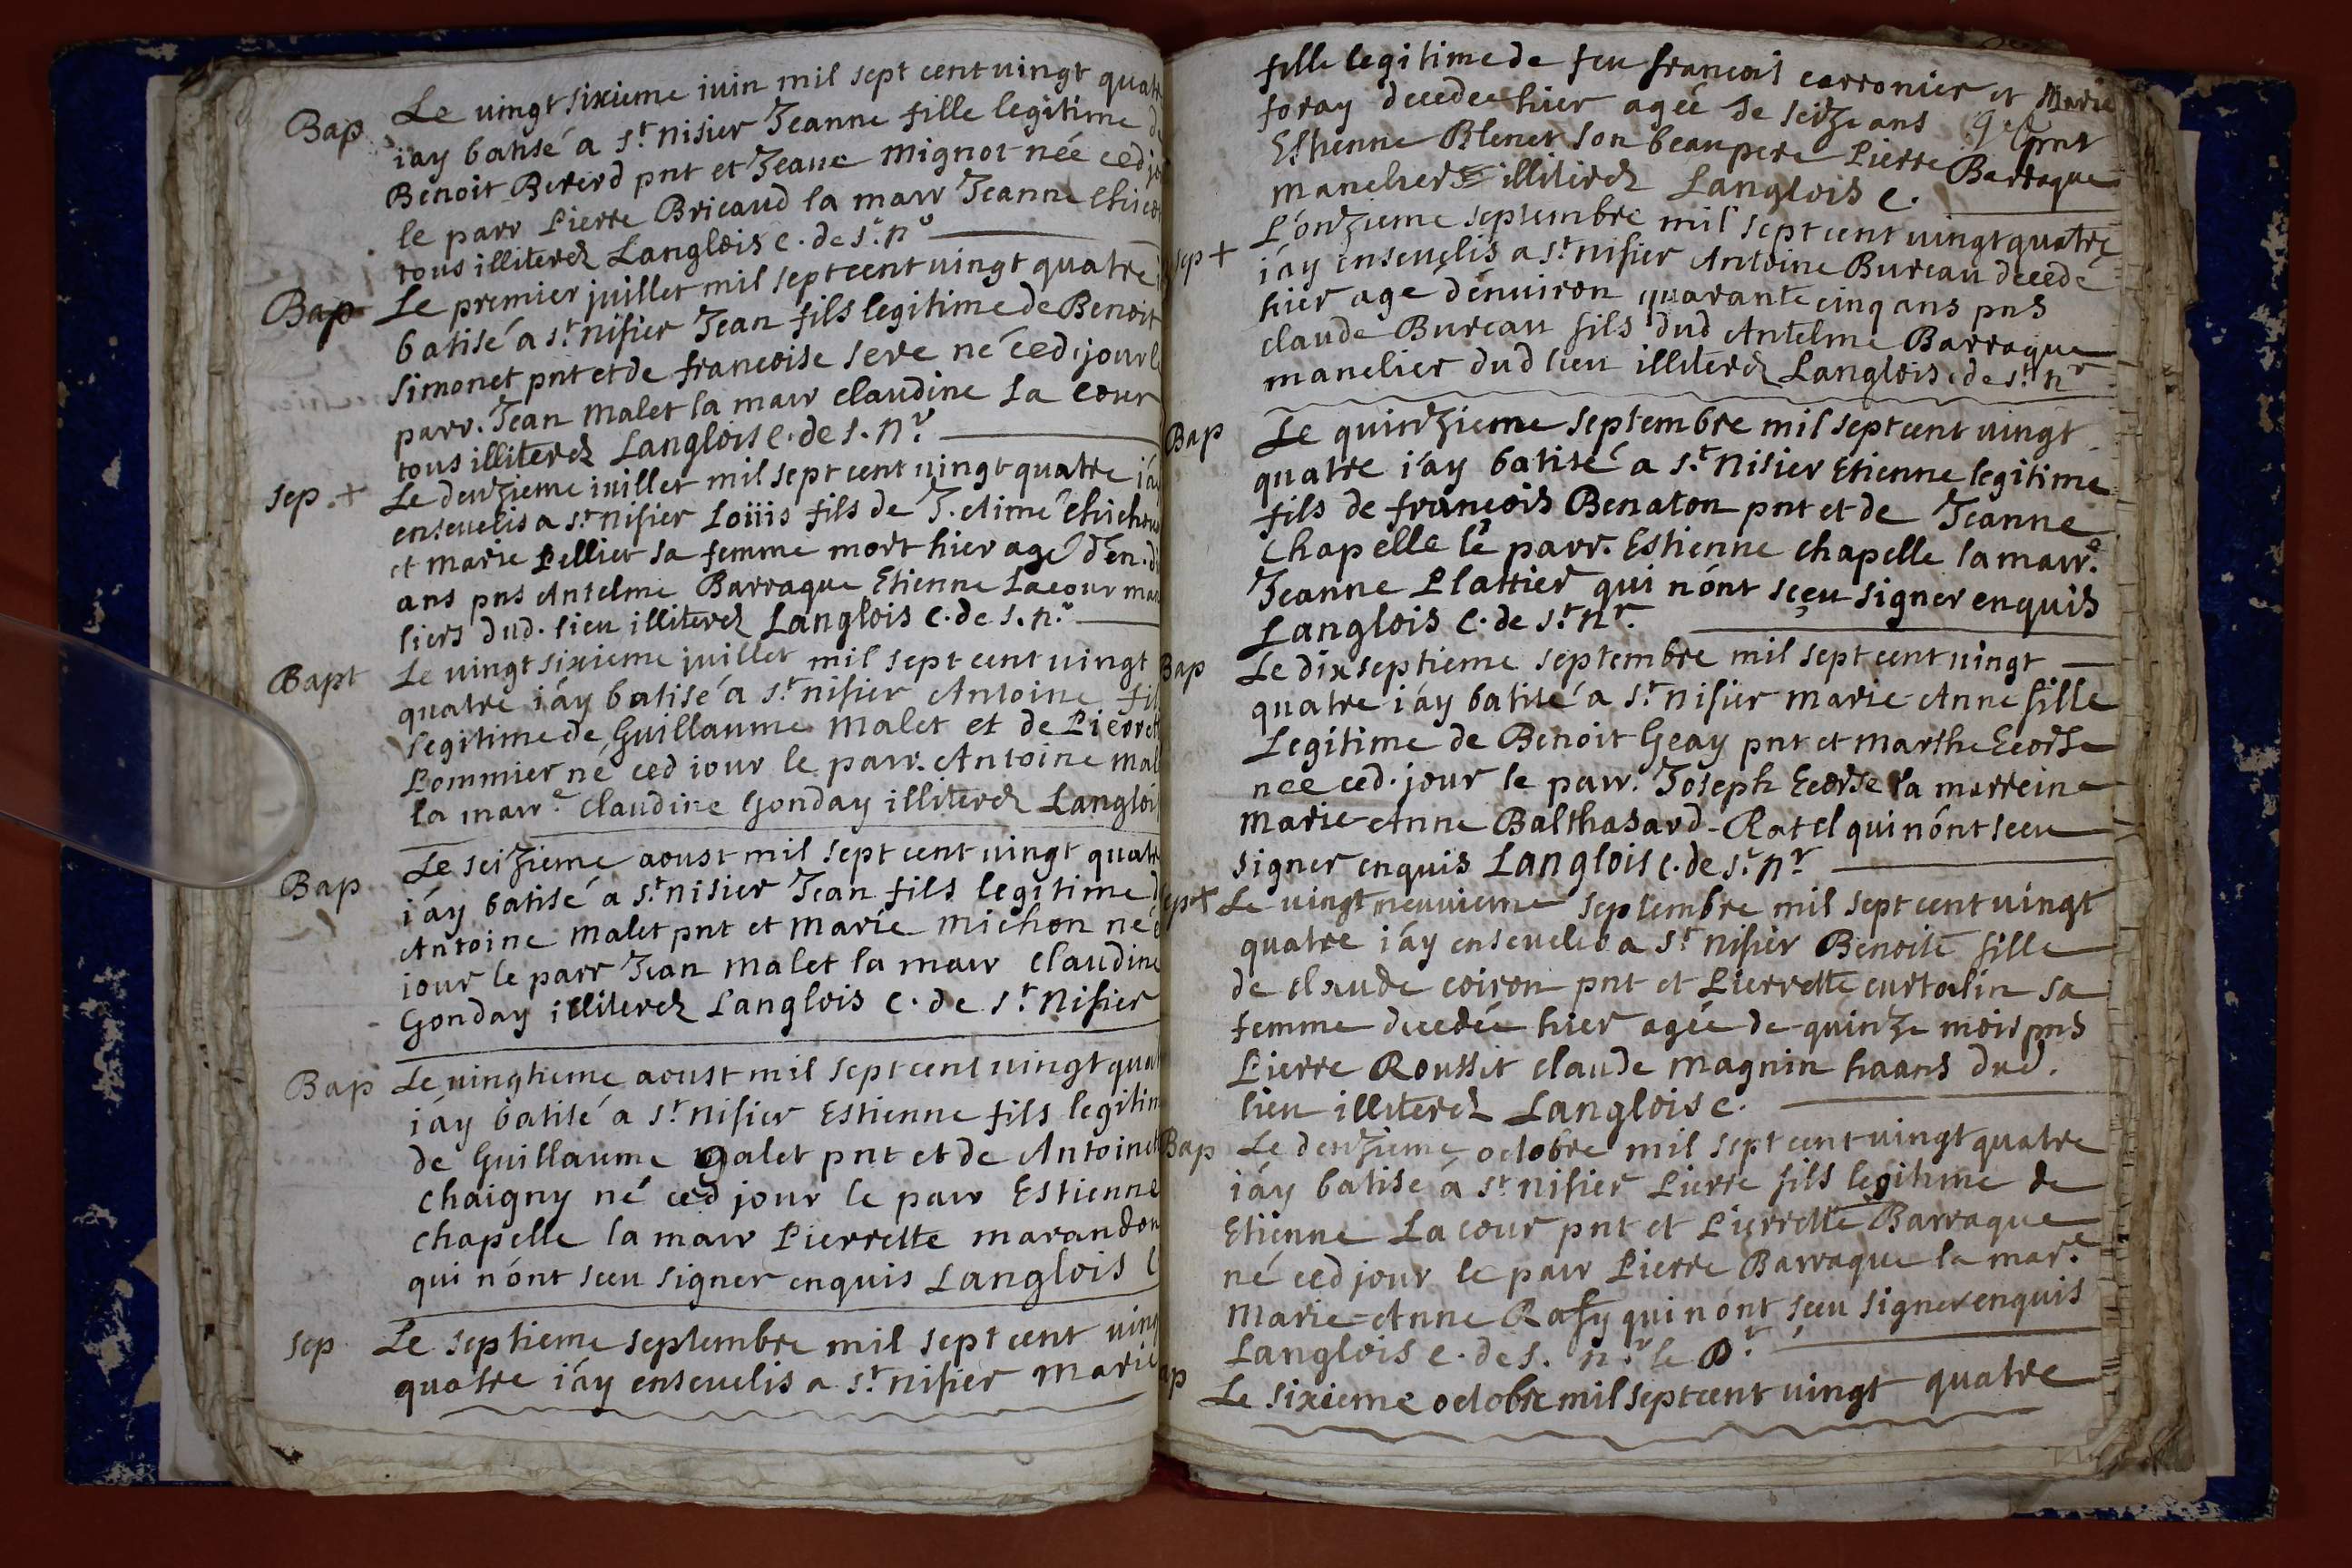 Bap Le vingt sixieme iuin mil sept cent vingt quatre
i'ay batisé a s.t nisier Jeanne fille legitime de
Benoit Bererd pnt et Jeane mignot née ced jo
le parr Pierre Bricaud la marr Jeanne
tous illiterez Langlois c. de s.t n.r
Bap Le premier juillet mil sept cent vingt quatre i
batisé a s.t nisier Jean fils legitime de Benoit
Simonet pnt et de francoise sere né ced. jour le
parr. Jean Malet la marr claudine La cour
tous illiterez Langlois c. de s. n.r
sep + Le deuzieme iuillet mil sept cent vingt quatre i'ay
enseuelis a s.t nisier Loüis fils de J. Aimé
et marie Pellier sa femme mort hier agé d'en. di
ans pns Antelme Barraque Etienne Lacour man
liers dud. lieu illiterez Langlois c. de s. n.r
Bapt Le vingt sixieme juillet mil sept cent vingt
quatre i'ay batisé a s.t nisier Antoine fil
legitime de Guillaume Malet et de Pierrett
Pommier né ced iour le parr. Antoine Mal
la marr.e claudine Gonday illiterez Langloi
Bap Le seizieme aoust mil sept cent vingt quatr
i'ay batisé a s.t nisier Jean fils legitime d
Antoine Malet pnt et Marie Michon né c
iour le parr Jean Malet la marr claudine
Gonday illiterez Langlois c. de s.t Nisier
Bap Le vingtieme aoust mil sept cent vingt quat
i'ay batisé a s.t nisier Estienne fils legitim
de Guillaume galet pnt et de Antoinett
chaigny né ced jour le parr Estienne
chapelle la marr Pierrette marandon
qui n'ont sceu signer enquis Langlois c
sep Le septieme septembre mil sept cent ving
quatre i'ay enseuelis a s.t nisier Marie
fille legitime de feu francois carronier et Marie
foray decedee hier agée de seize ans
Esthenne Blenet son beaupere Pierre Barraque
manelier illiterez Langlois c.
sep + L'onzieme septembre mil sept cent vingt quatre
i'ay enseuelis a s.t nisier Antoine Bureau decedé
hier age d'enuiron quarante cinq ans pns
claude Bureau fils dud Antelme Barraque
manelier dud lieu illiterez Langlois c de s.t n.r
Bap Le quinzieme septembre mil sept cent vingt
quatre i'ay batisé a s.t Nisier Etienne legitime
fils de francois Benaton pnt et de Jeanne
Chapelle le parr. Estienne chapelle la marr.e
Jeanne Plattier qui n'ont sceu signer enquis
Langlois c. de s.t n.r
Bap Le dix septieme septembre mil sept cent vingt
quatre i'ay batisé a s.t nisier marie Anne fille
Legitime de Benoit Geay pnt et marthe Ecorse
nee ced. jour le parr. Joseph Ecorse la marreine
Marie Anne Balthasard-Ratel qui n'ont sceu
signer enquis Langlois c. de s.t n.r
ep + Le vingt neuuieme septembre mil sept cent vingt
quatre i'ay enseuelis a s.t nisier Benoite fille
de claude coiron pnt et Pierrette curtalin sa
femme decedée hier agée de quinze mois pns
Pierre Rousset claude magnin haans dud.
lieu illiterez Langlois c.
Bap Le deuzieme octobre mil sept cent vingt quatre
i'ay batisé a s.t nisier Pierre fils legitime de
Etienne La cour pnt et Pierrette Barraque
né ced jour le parr Pierre Barraque la mar.e
Marie=Anne Rafy qui n'ont sceu signer enquis
Langlois c. de s. n.r le D.r
ap Le sixieme octobre mil sept cent vingt quatre